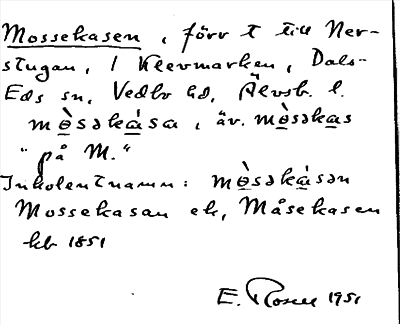 Mossekasen, förr t till Ner-
stugan, 1 Klevmarken, Dals-
Eds sn, Vedbo hd, Älvsb. l.
mɵ̀səkása, äv. mɵ̀səkas
"på M."
Inkolentnamn: mɵ̀səkásən
Mossekasan ek, Måsekasen
kb 1851
E. Rosell 1951